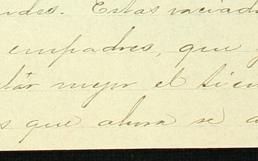 ndes. Estas vaciad
empadres, que
tar mejor el tiem
s que ahora se a